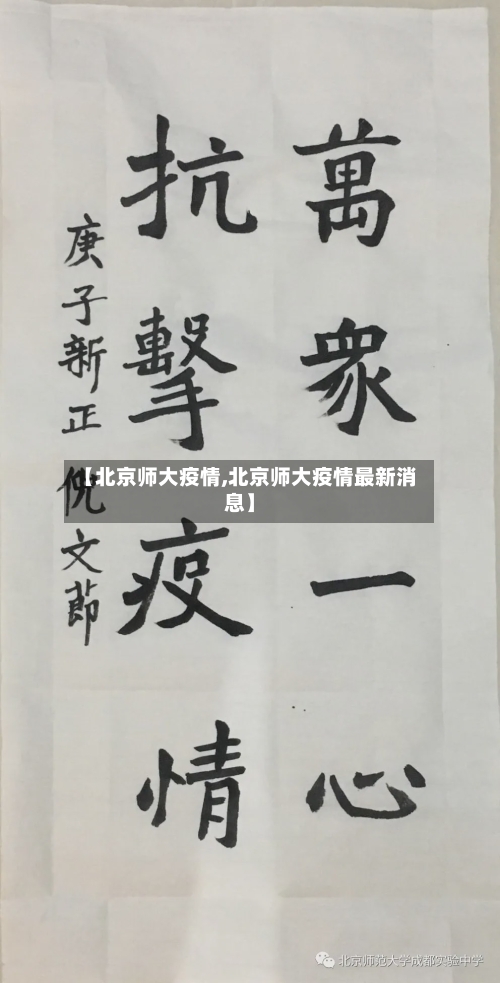 萬眾一心
抗擊疫情
庚子新正 倪文節
【北京师大疫情,北京师大疫情最新消
息】
北京师范大学成都实验中学